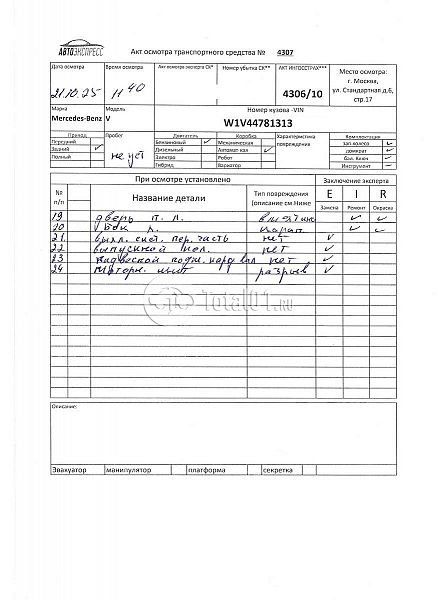 АВТОЭКСПРЕСС
Акт осмотра транспортного средства № 4307
Дата осмотра Время осмотра Акт осмотра эксперта СК* Номер убытка СК** АКТ ИНГОССТРАХ*** Место осмотра:
21.10.25 11 40 4306/10 г. Москва,
ул. Стандартная д.6,
стр.17
Марка Модель Номер кузова -VIN
Mercedes-Benz V W1V44781313
Привод Пробег Двигатель Коробка Характеристика Комплектация
Передний Бензиновый ✓ Механическая повреждения зап.колесо ✓
Задний ✓ Дизельный Автомат кая ✓ домкрат ✓
Полный нету Электро Робот бал. Ключ ✓
Гибрид Вариатор Инструмент
При осмотре установлено Заключение эксперта
№ п/п Название детали Тип повреждения (описание см.Ниже E I R
Замена Ремонт Окраска
19 дверь п. л. вмятины ✓ ✓
20 бок л. царап. ✓ ✓
21 выхл. сист. пер. часть нет ✓
22 выпускной кол. нет ✓
23 нет ✓
24 моторн. щит разрыв ✓
Total01.ru
Описание:
Эвакуатор манипулятор платформа секретка